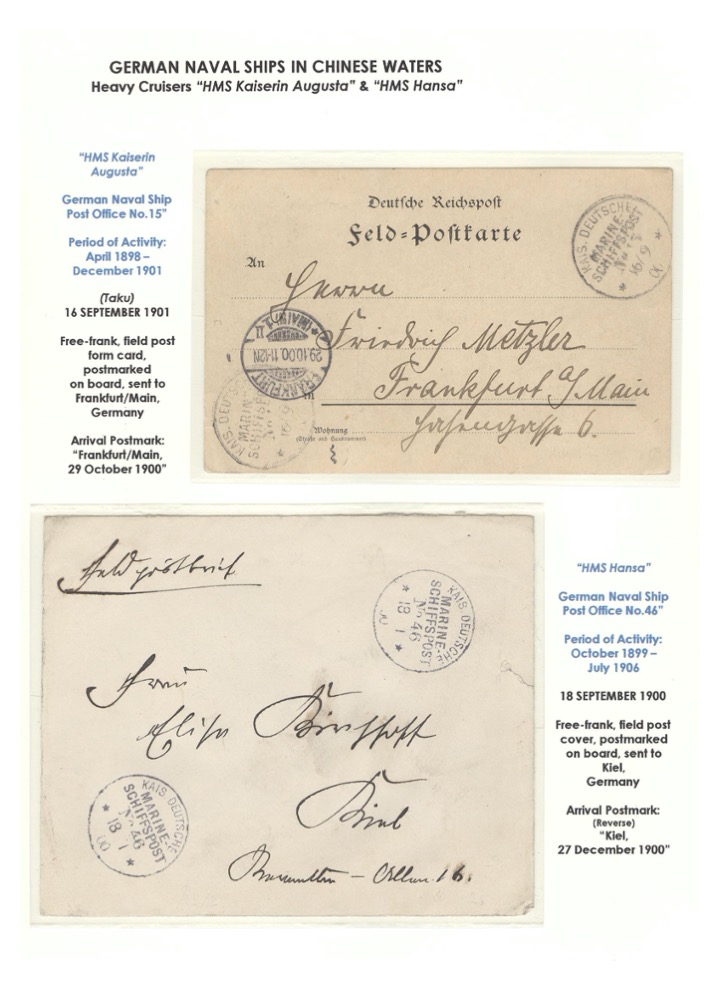 GERMAN NAVAL SHIPS IN CHINESE WATERS
Heavy Cruisers “HMS Kaiserin Augusta” & “HMS Hansa”
“HMS Kaiserin
Augusta”
German Naval Ship
Post Office No.15”
Period of Activity:
April 1898 –
December 1901
(Taku)
16 SEPTEMBER 1901
Free-frank, field post
form card,
postmarked
on board, sent to
Frankfurt/Main,
Germany
Arrival Postmark:
“Frankfurt/Main,
29 October 1900”
Deutsche Reichspost
Feld=Postkarte
An
Herrn
Friedrich Metzler
in Frankfurt a/Main
Wohnung
(Straße und Hausnummer)
Hasengasse 6.
KAIS. DEUTSCHE
MARINE-
SCHIFFSPOST
* 16/9 *
00
FRANKFURT
(MAIN) 1
29.10.00.11-12N
II
KAIS. DEUTSCHE
MARINE-
SCHIFFSPOST
* 16/9
Feldpostbrief
KAIS. DEUTSCHE
MARINE-
SCHIFFSPOST
No 46
* 18 1 *
00
Frau
Elisa Kirchhoff
Kiel
KAIS. DEUTSCHE
MARINE-
SCHIFFSPOST
No 46
* 18 1 *
00
“HMS Hansa”
German Naval Ship
Post Office No.46”
Period of Activity:
October 1899 –
July 1906
18 SEPTEMBER 1900
Free-frank, field post
cover, postmarked
on board, sent to
Kiel,
Germany
Arrival Postmark:
(Reverse)
“Kiel,
27 December 1900”